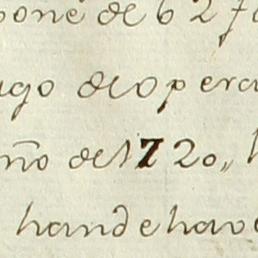 pone de 6 27
ago de opera
año de 1720,, h
han de have